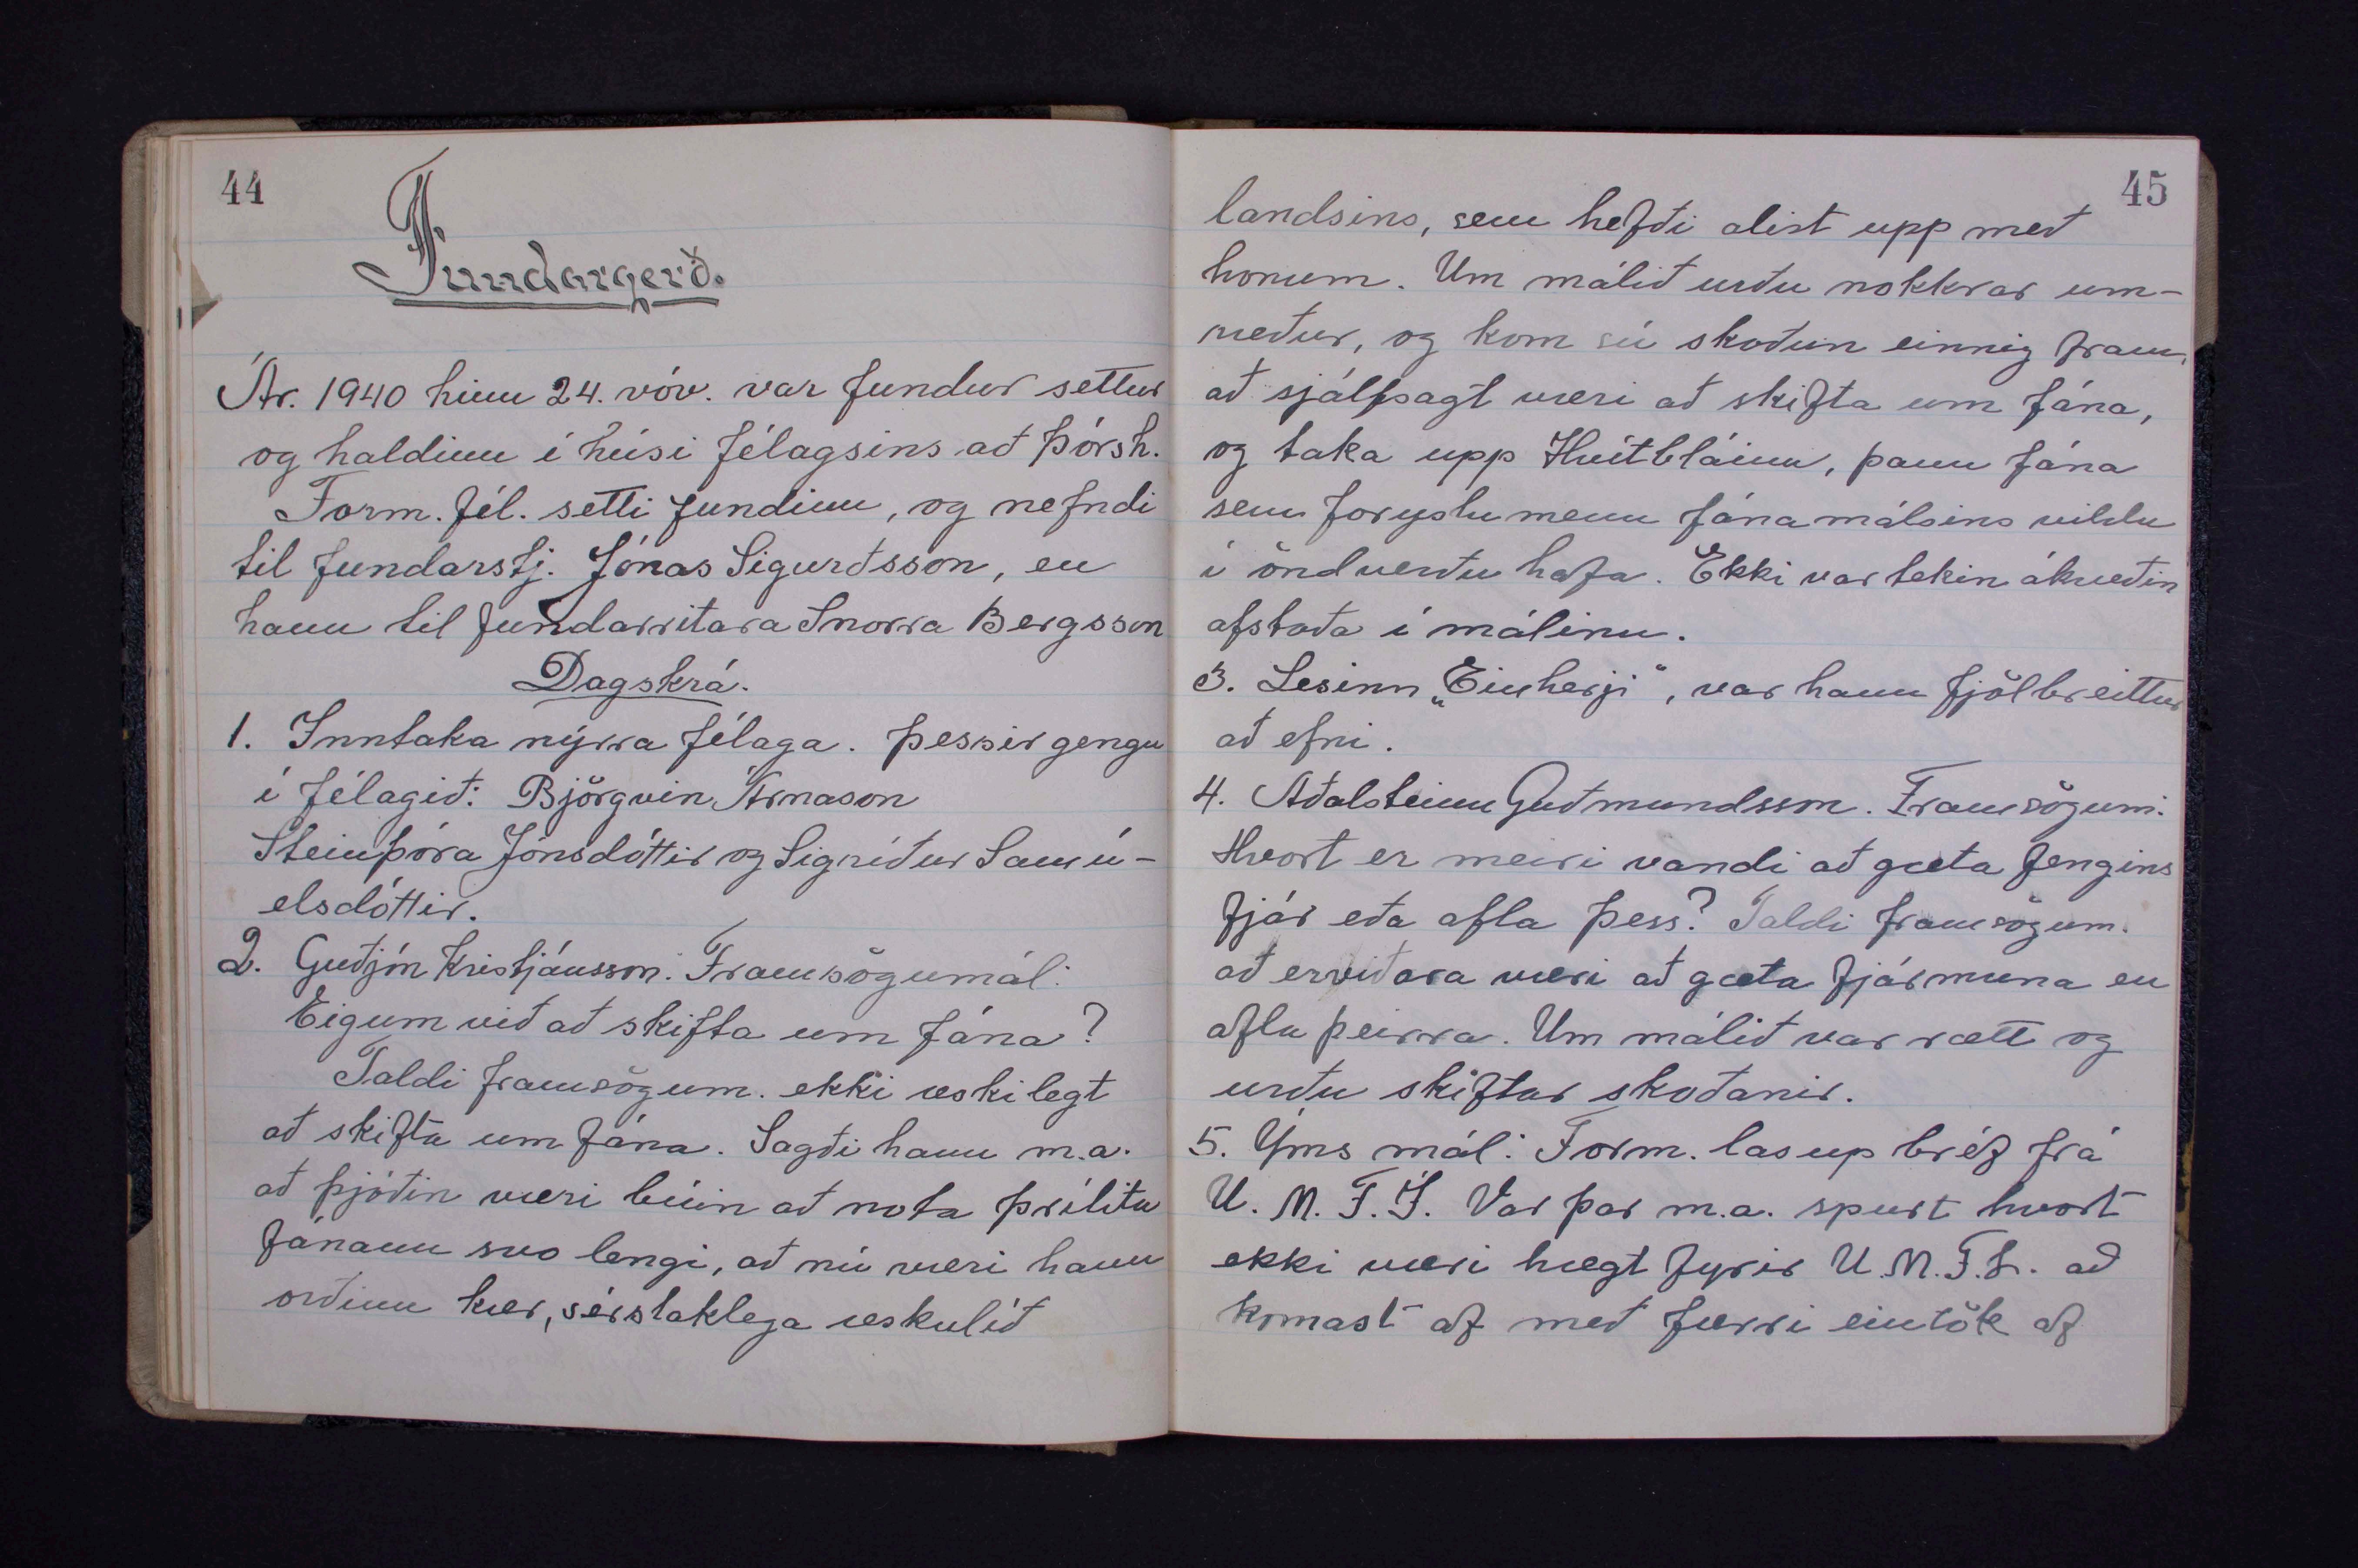 44
Fundargerð.
Ár. 1940 hinn 24. nóv. var fundur settur
og haldinn í húsi félagsins að Þórsh.
Form. fél. setti fundinn, og nefndi
til fundarstj. Jónas Sigurðsson, en
hann til fundarritara Snorra Bergsson
Dagskrá.
1. Inntaka nýrra félaga. Þessir gengu
í félagið: Björgvin Árnason
Steinþóra Jónsdóttir og Sigríður Samú-
elsdóttir.
2. Guðjón Kristjánsson: Framsögumál:
Eigum við að skifta um fána?
Taldi framsögum. ekki æskilegt
að skifta um fána. Sagði hann m.a.
að þjóðin væri búin að nota þrílitu
fánann svo lengi, að nú væri hann
orðinn kær, sérstaklega æskulíð
45
landsins, sem hefði alist upp með
honum. Um málið urðu nokkrar um-
ræður, og kom sú skoðun einnig fram,
að sjálfsagt væri að skifta um fána,
og taka upp Hvítbláinn, þann fána
sem forystumenn fánamálsins vildu
í öndverðu hafa. Ekki var tekin ákveðin
afstaða í málinu.
3. Lesinn „Einherji“, var hann fjölbreittur
að efni.
4. Aðalsteinn Guðmundsson. Framsögum:
Hvort er meiri vandi að gæta fengins
fjár eða afla þess? Taldi framsögum.
að erviðara væri að gæta fjármuna en
afla þeirra. Um málið var rætt og
urðu skiftar skoðanir.
5. Ýms mál: Form. las up bréf frá
U. M. F. Í. Var þar m.a. spurt hvort
ekki væri hægt fyrir U.M.F.L. að
komast af með færri eintök af